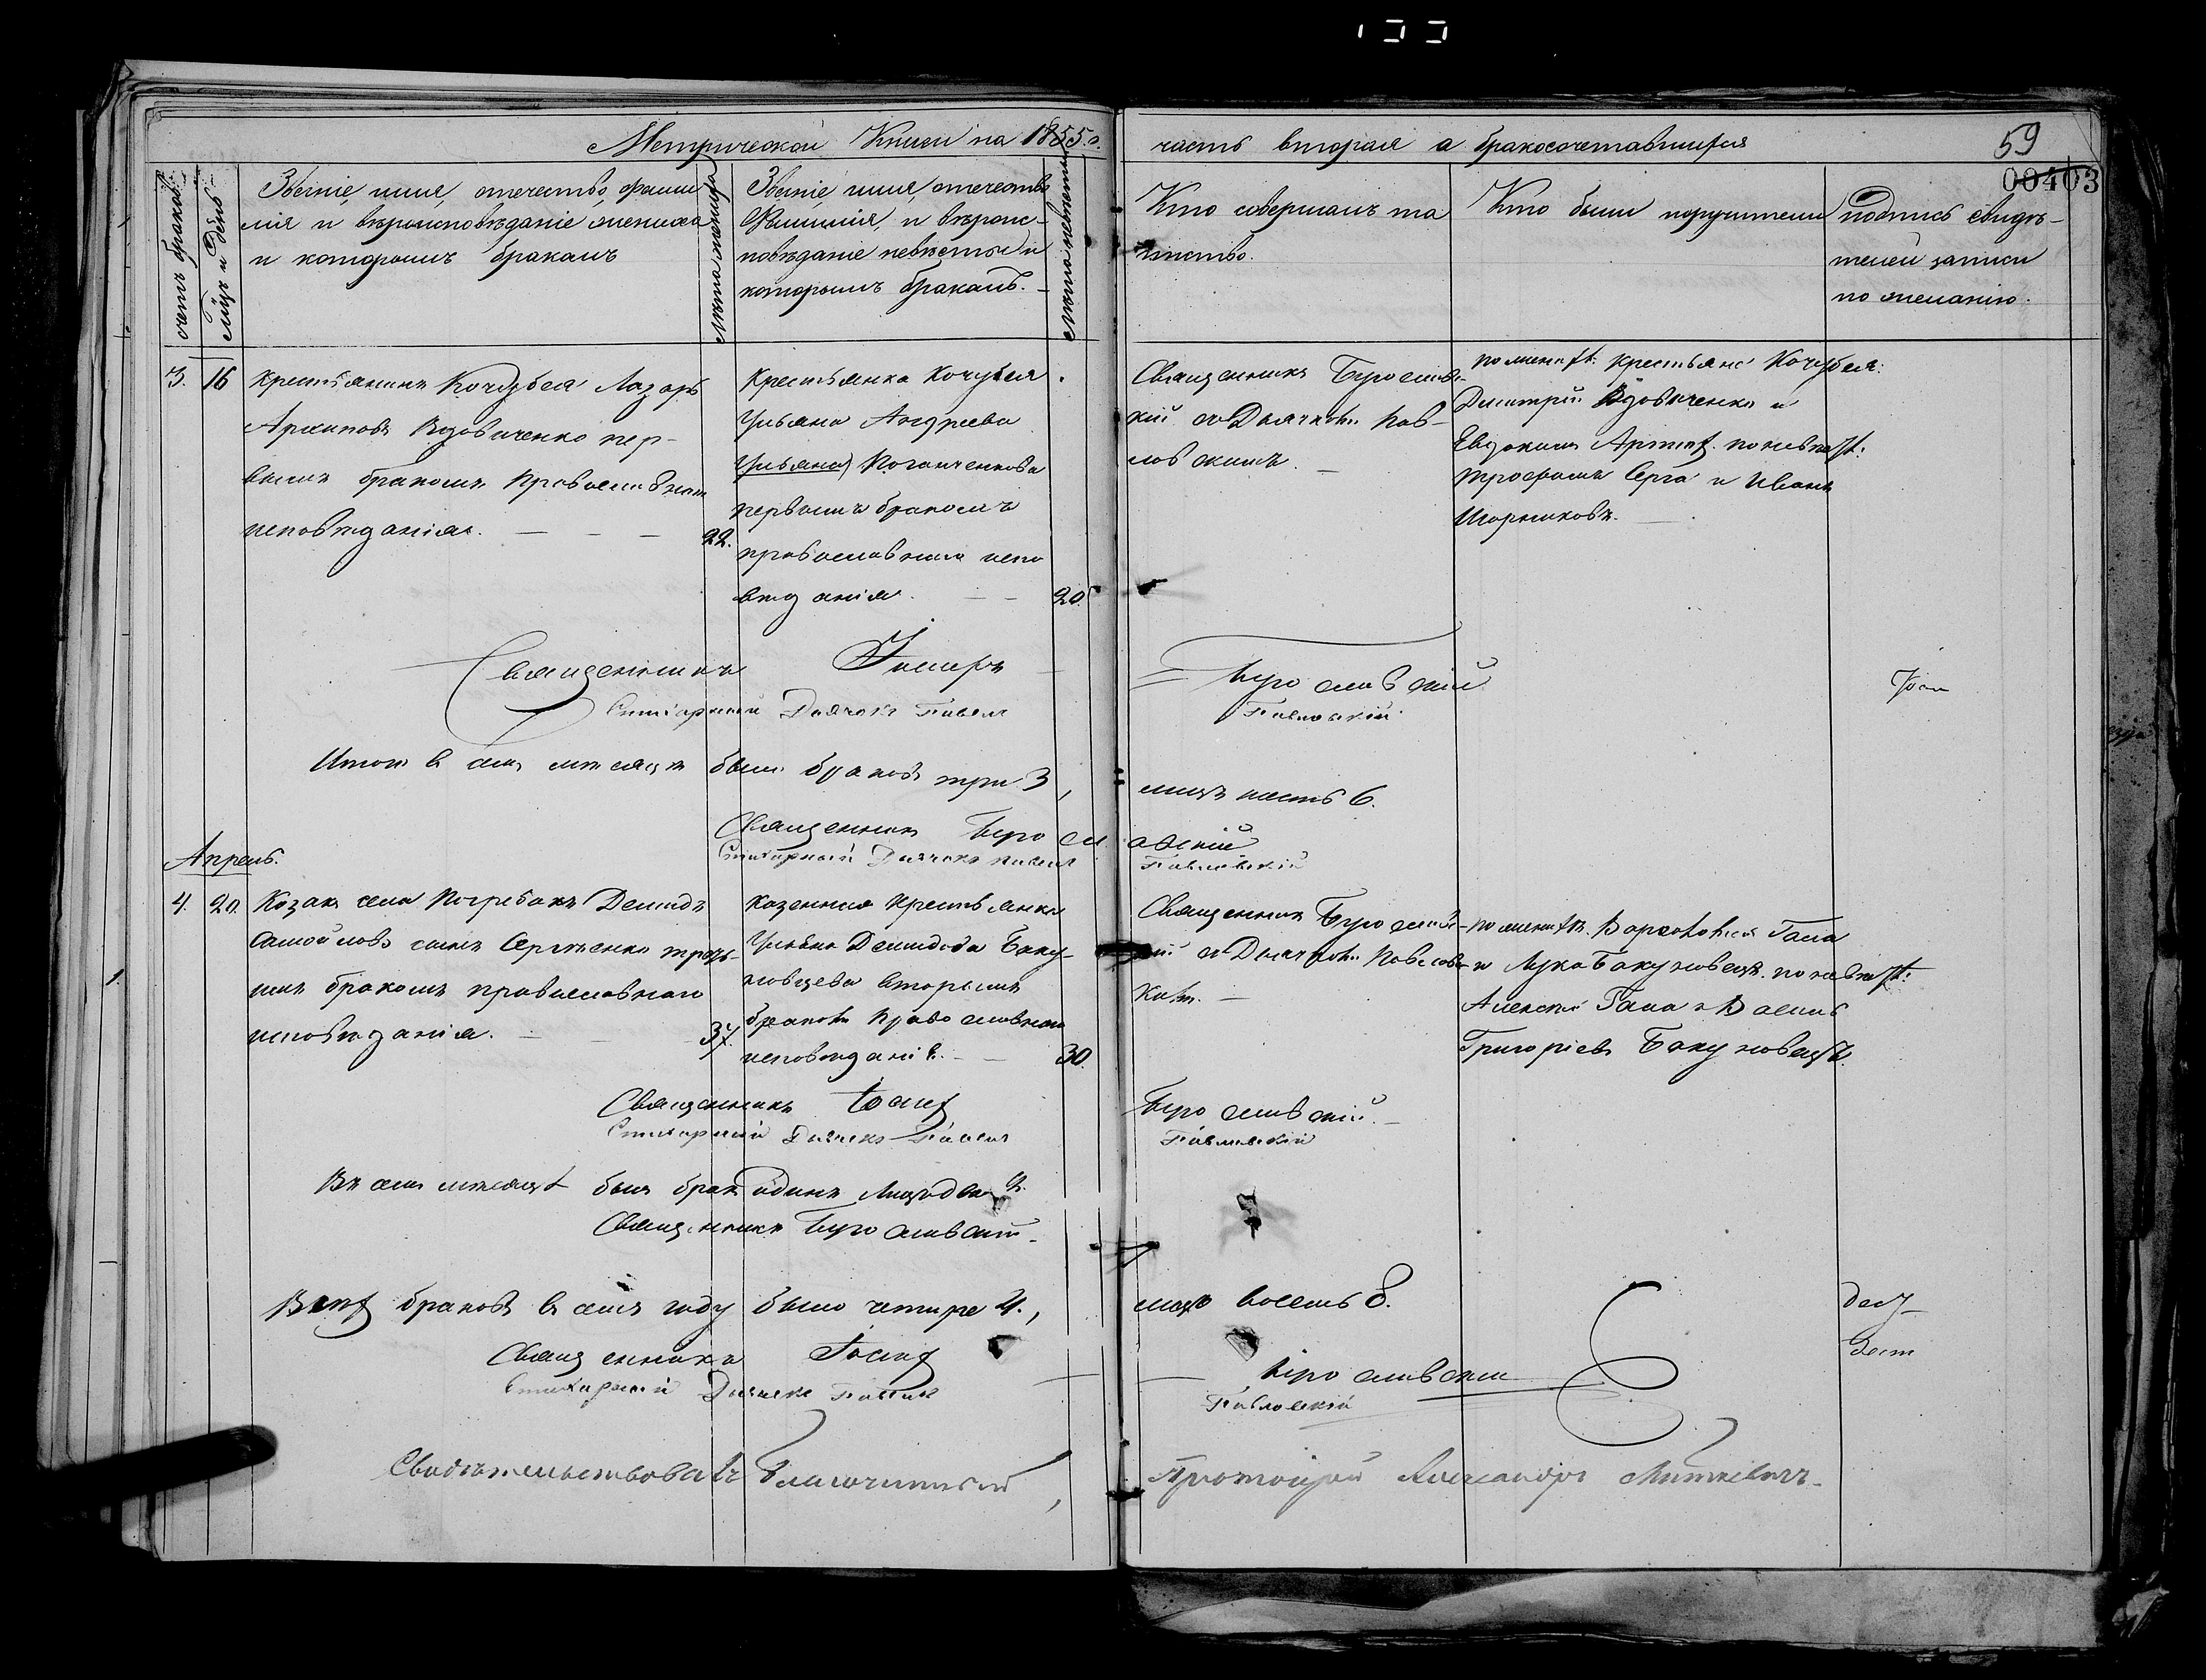 Метрической Книги на 1855 г.
часть вторая о бракосочетавшихся
59
00403
счетъ браковъ
Мѣцъ и день
Званіе, имя, отечество, фами
лія и вѣроисповѣданіе жениха
и которымъ бракомъ
Лѣта жениха
Званіе, имя, отечество
Фамилія, и вѣроис-
повѣданіе невѣсты и
которымъ бракомъ.
Лѣта невѣсты
Кто совершалъ та
инство.
Кто были поручители
подпись свидѣ-
телей записи
по желанію.
3. 16
Крестьянинъ Кочубея Лазарь
Архиповъ Вдовиченко пер-
вымъ бракомъ Православнаго
исповѣданія.
22.
Крестьянка Кочубея
Ульяна Андреева
Ульяна) Поганченкова
первымъ бракомъ
православнаго испо
вѣданія.
20.
Священникъ Бугославс-
кій съ Дьячкомъ Пав-
ловскимъ.
по женихѣ: крестьяне Кочубея:
Димитрій Вдовиченко и
Евдокимъ по невѣстѣ:
Трофимъ Серга и Иванъ
Священникъ Іосифъ
Бугославскій
Стихарный Дьячокъ Павелъ
Павловскій
Итого въ семъ мѣсяцѣ было браковъ три 3,
лицъ шесть 6.
Священникъ Бугославскій
Стихарный Дьячокъ Павелъ
Павловскій
Апрель.
4. 20.
Козакъ села Погребокъ Демидъ
Самойловъ сынъ Сергіенко треть-
имъ бракомъ православнаго
исповѣданія.
37.
казенная крестьянка
Ульяна Демидова Баку-
новцева вторымъ
бракомъ Православнаго
исповѣданія.
30.
Священникъ Бугославс-
кій съ Дьячкомъ Павловс-
кимъ.
по женихѣ. Варѳоломей Гапа
и Лука Бакуновецъ. по невѣстѣ:
Алексей Гапа и Василь
Григоріевъ Бакуновецъ.
Священникъ Іосифъ
Бугославскій.
Стихарный Дьячокъ Павелъ
Павловскій
Въ семъ мѣсяцѣ былъ бракъ одинъ Лицъ два 2.
Священникъ Бугославскій.
Всѣхъ браковъ въ семъ году было четыре 4.,
лицъ восемь 8.
Священникъ Іосифъ
Бугославскій
Стихарный Дьячокъ Павелъ
Павловскій
Свидѣтельствовалъ Благочинный,
Протоіерей Александръ